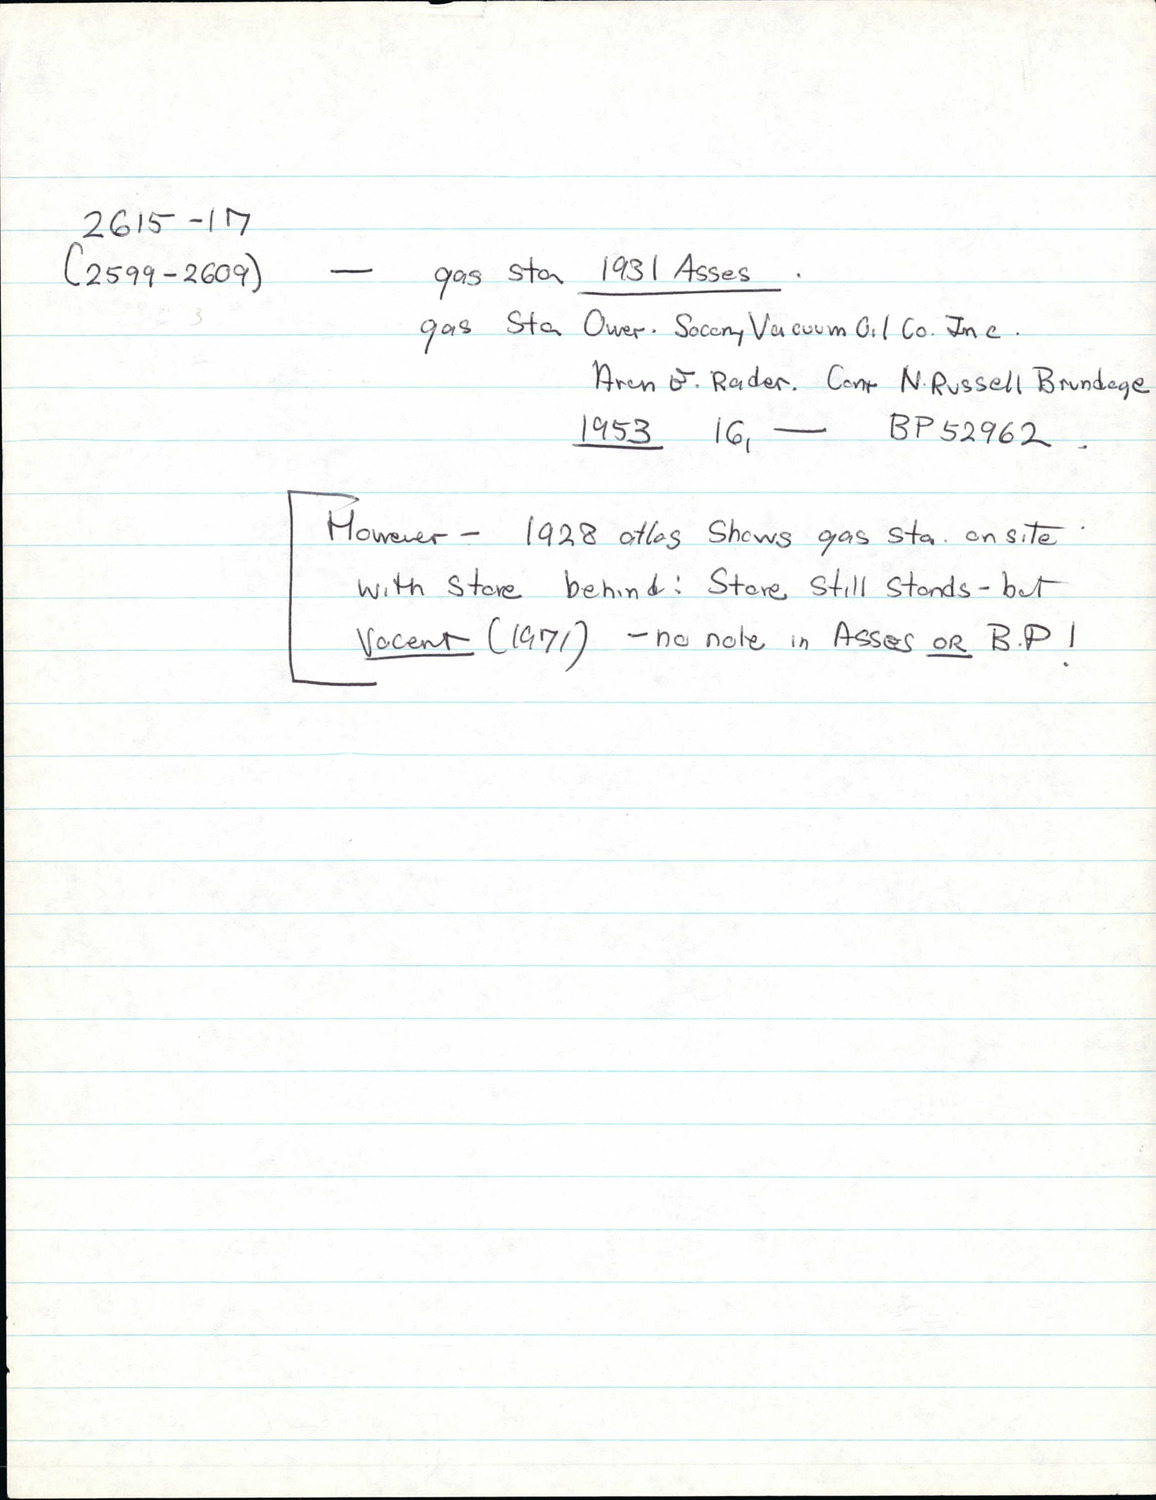 2615-17
(2599-2609) — gas sta 1931 Asses.
gas Sta Owner. Socony Vacuum Oil Co. Inc.
F. Rader. Contr N. Russell Brundage
1953 16, — BP 52962.
However - 1928 atlas Shows gas sta. on site
with Store behind: Store Still Stands - but
Vacant (1971) - no note in Asses OR B.P!